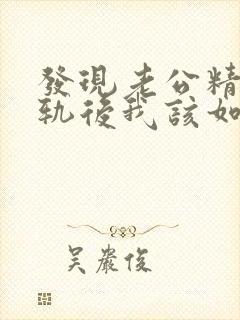 發現老公精
軌後我該如
吴嚴俊